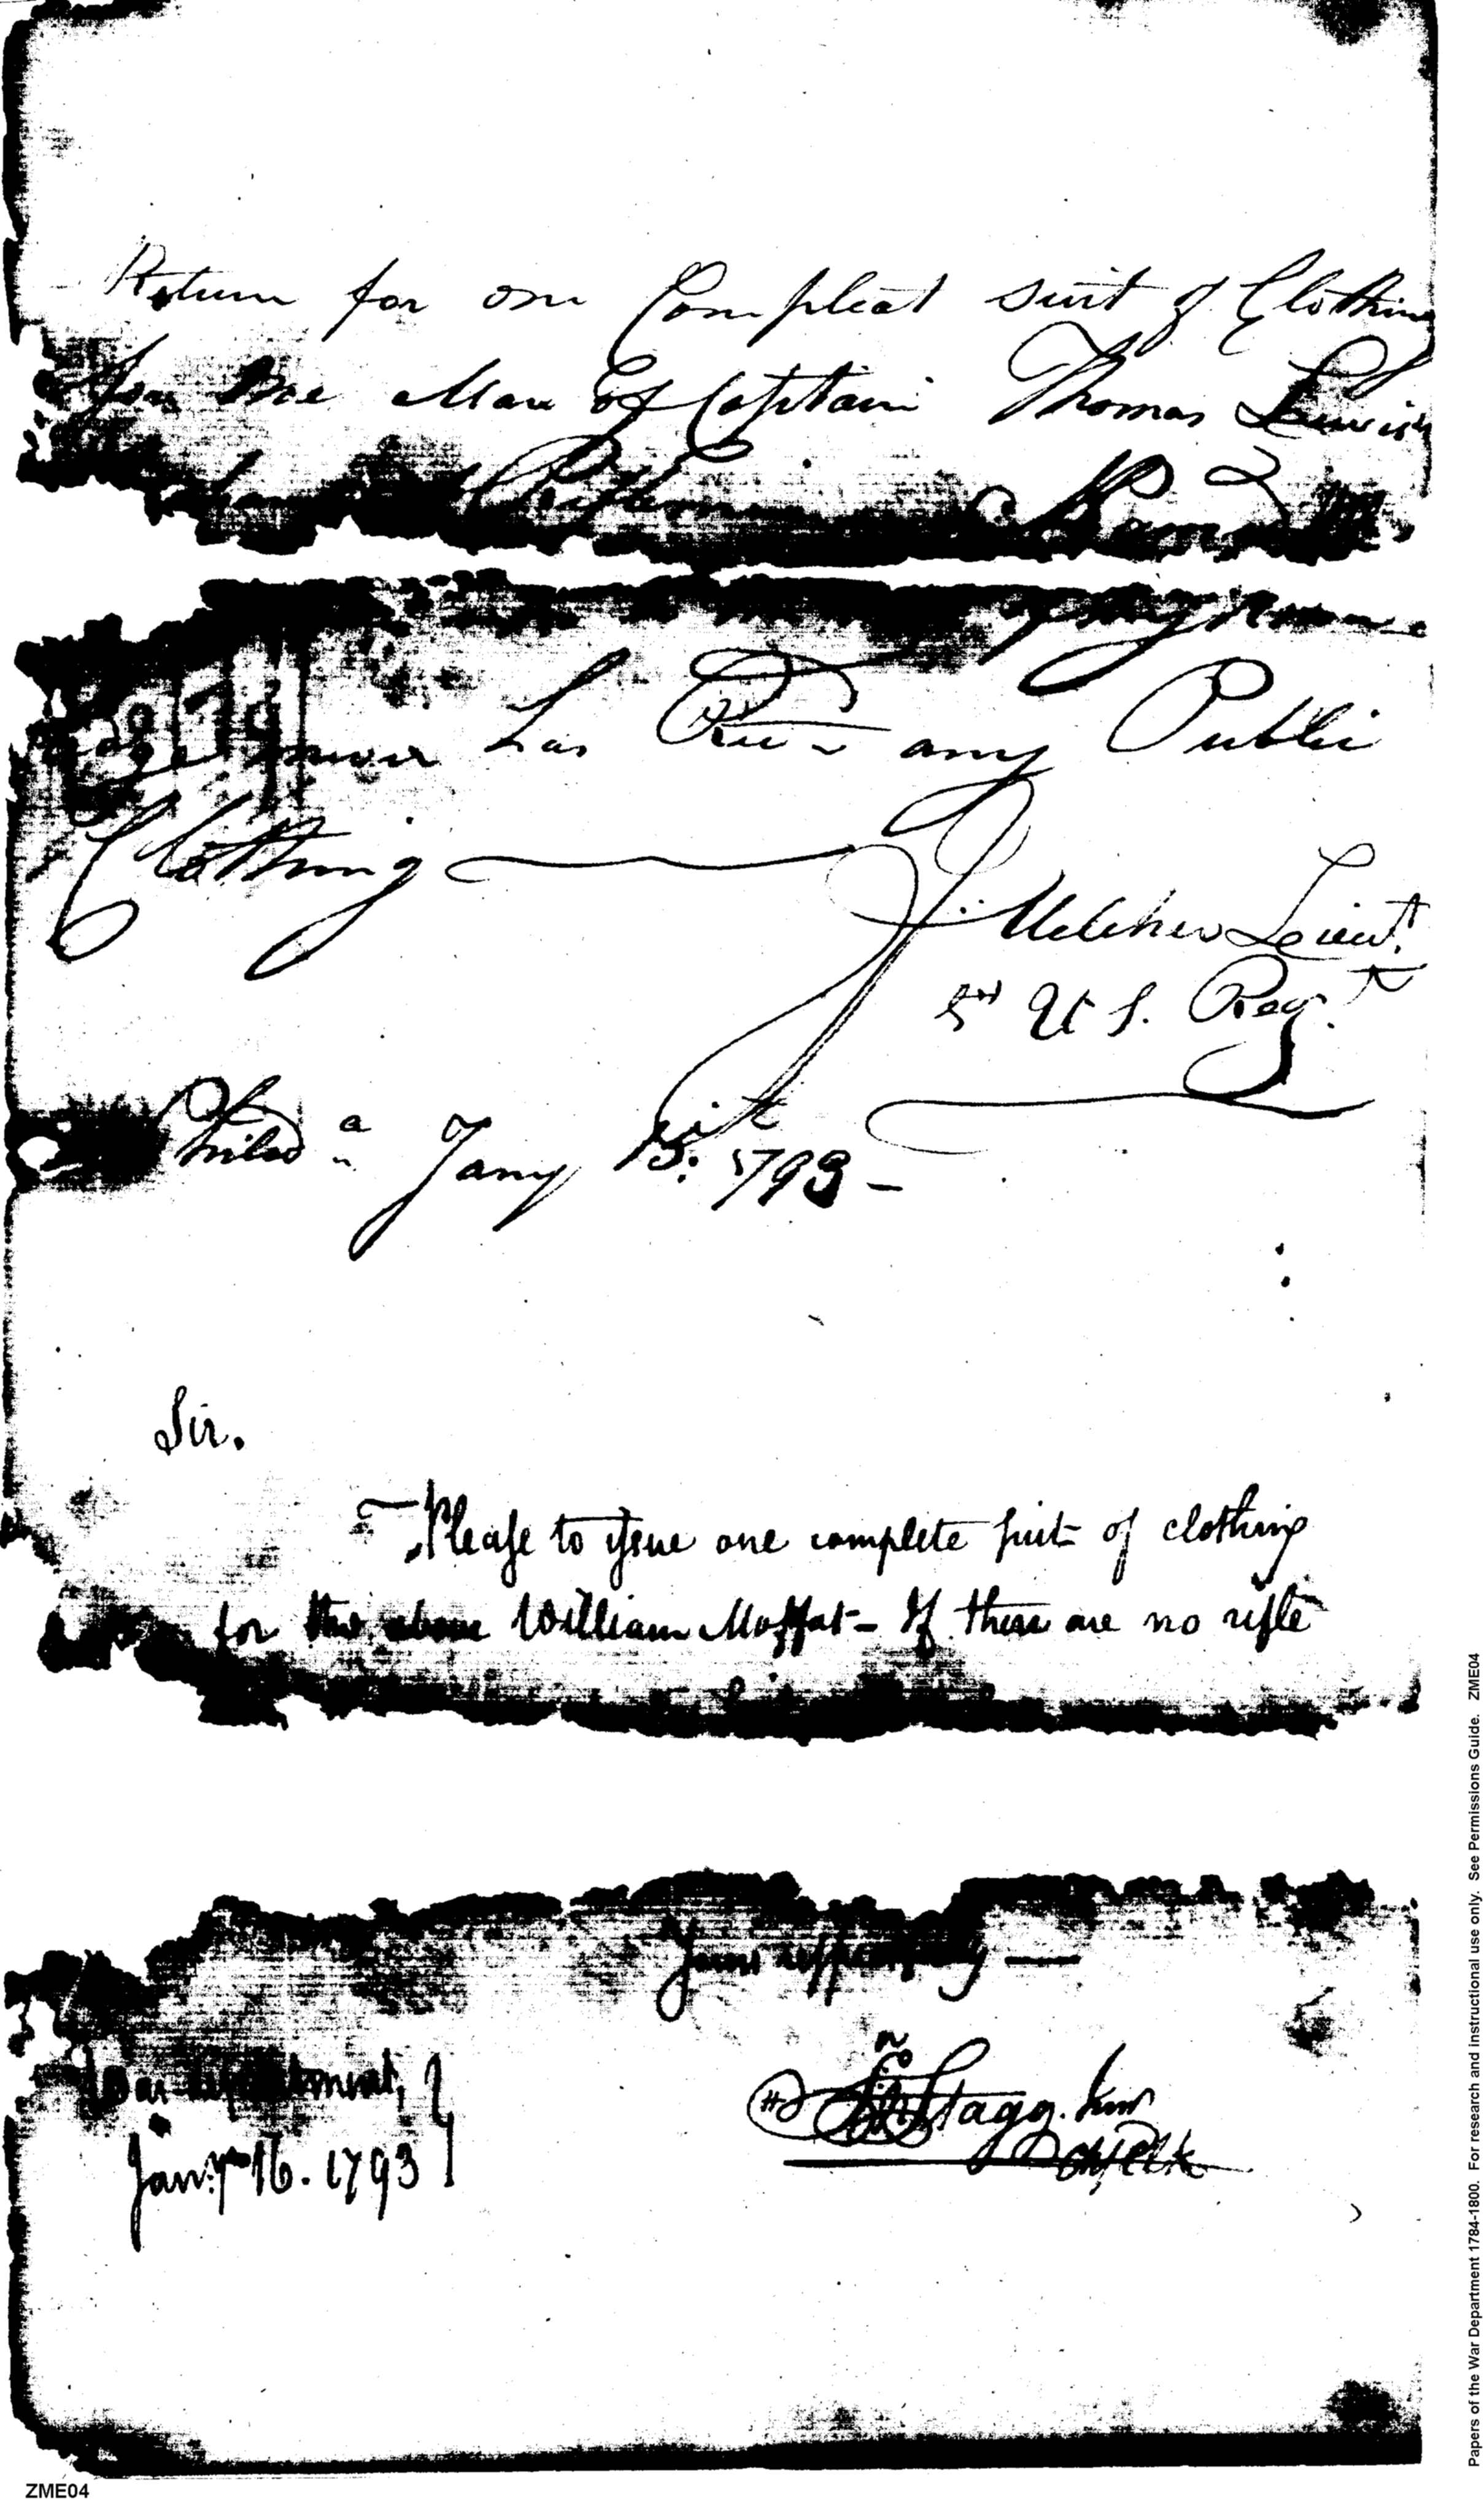 Return for one Compleat suit of Clothing
for One Man of Captain Thomas Lewis's
never has Rec'd any Public
Clothing
J. Melcher Lieut.
U S. Regt.
Philada Jany 15. 1793 -
Sir.
Please to issue one complete suit of clothing
for the above William Moffat - If there are no rifle
Yours respectfully
War department,
Jany 16. 1793
Jno Stagg. Junr
Ch. Clk
Papers of the War Department 1784-1800. For research and instructional use only. See Permissions Guide. ZME04
ZME04